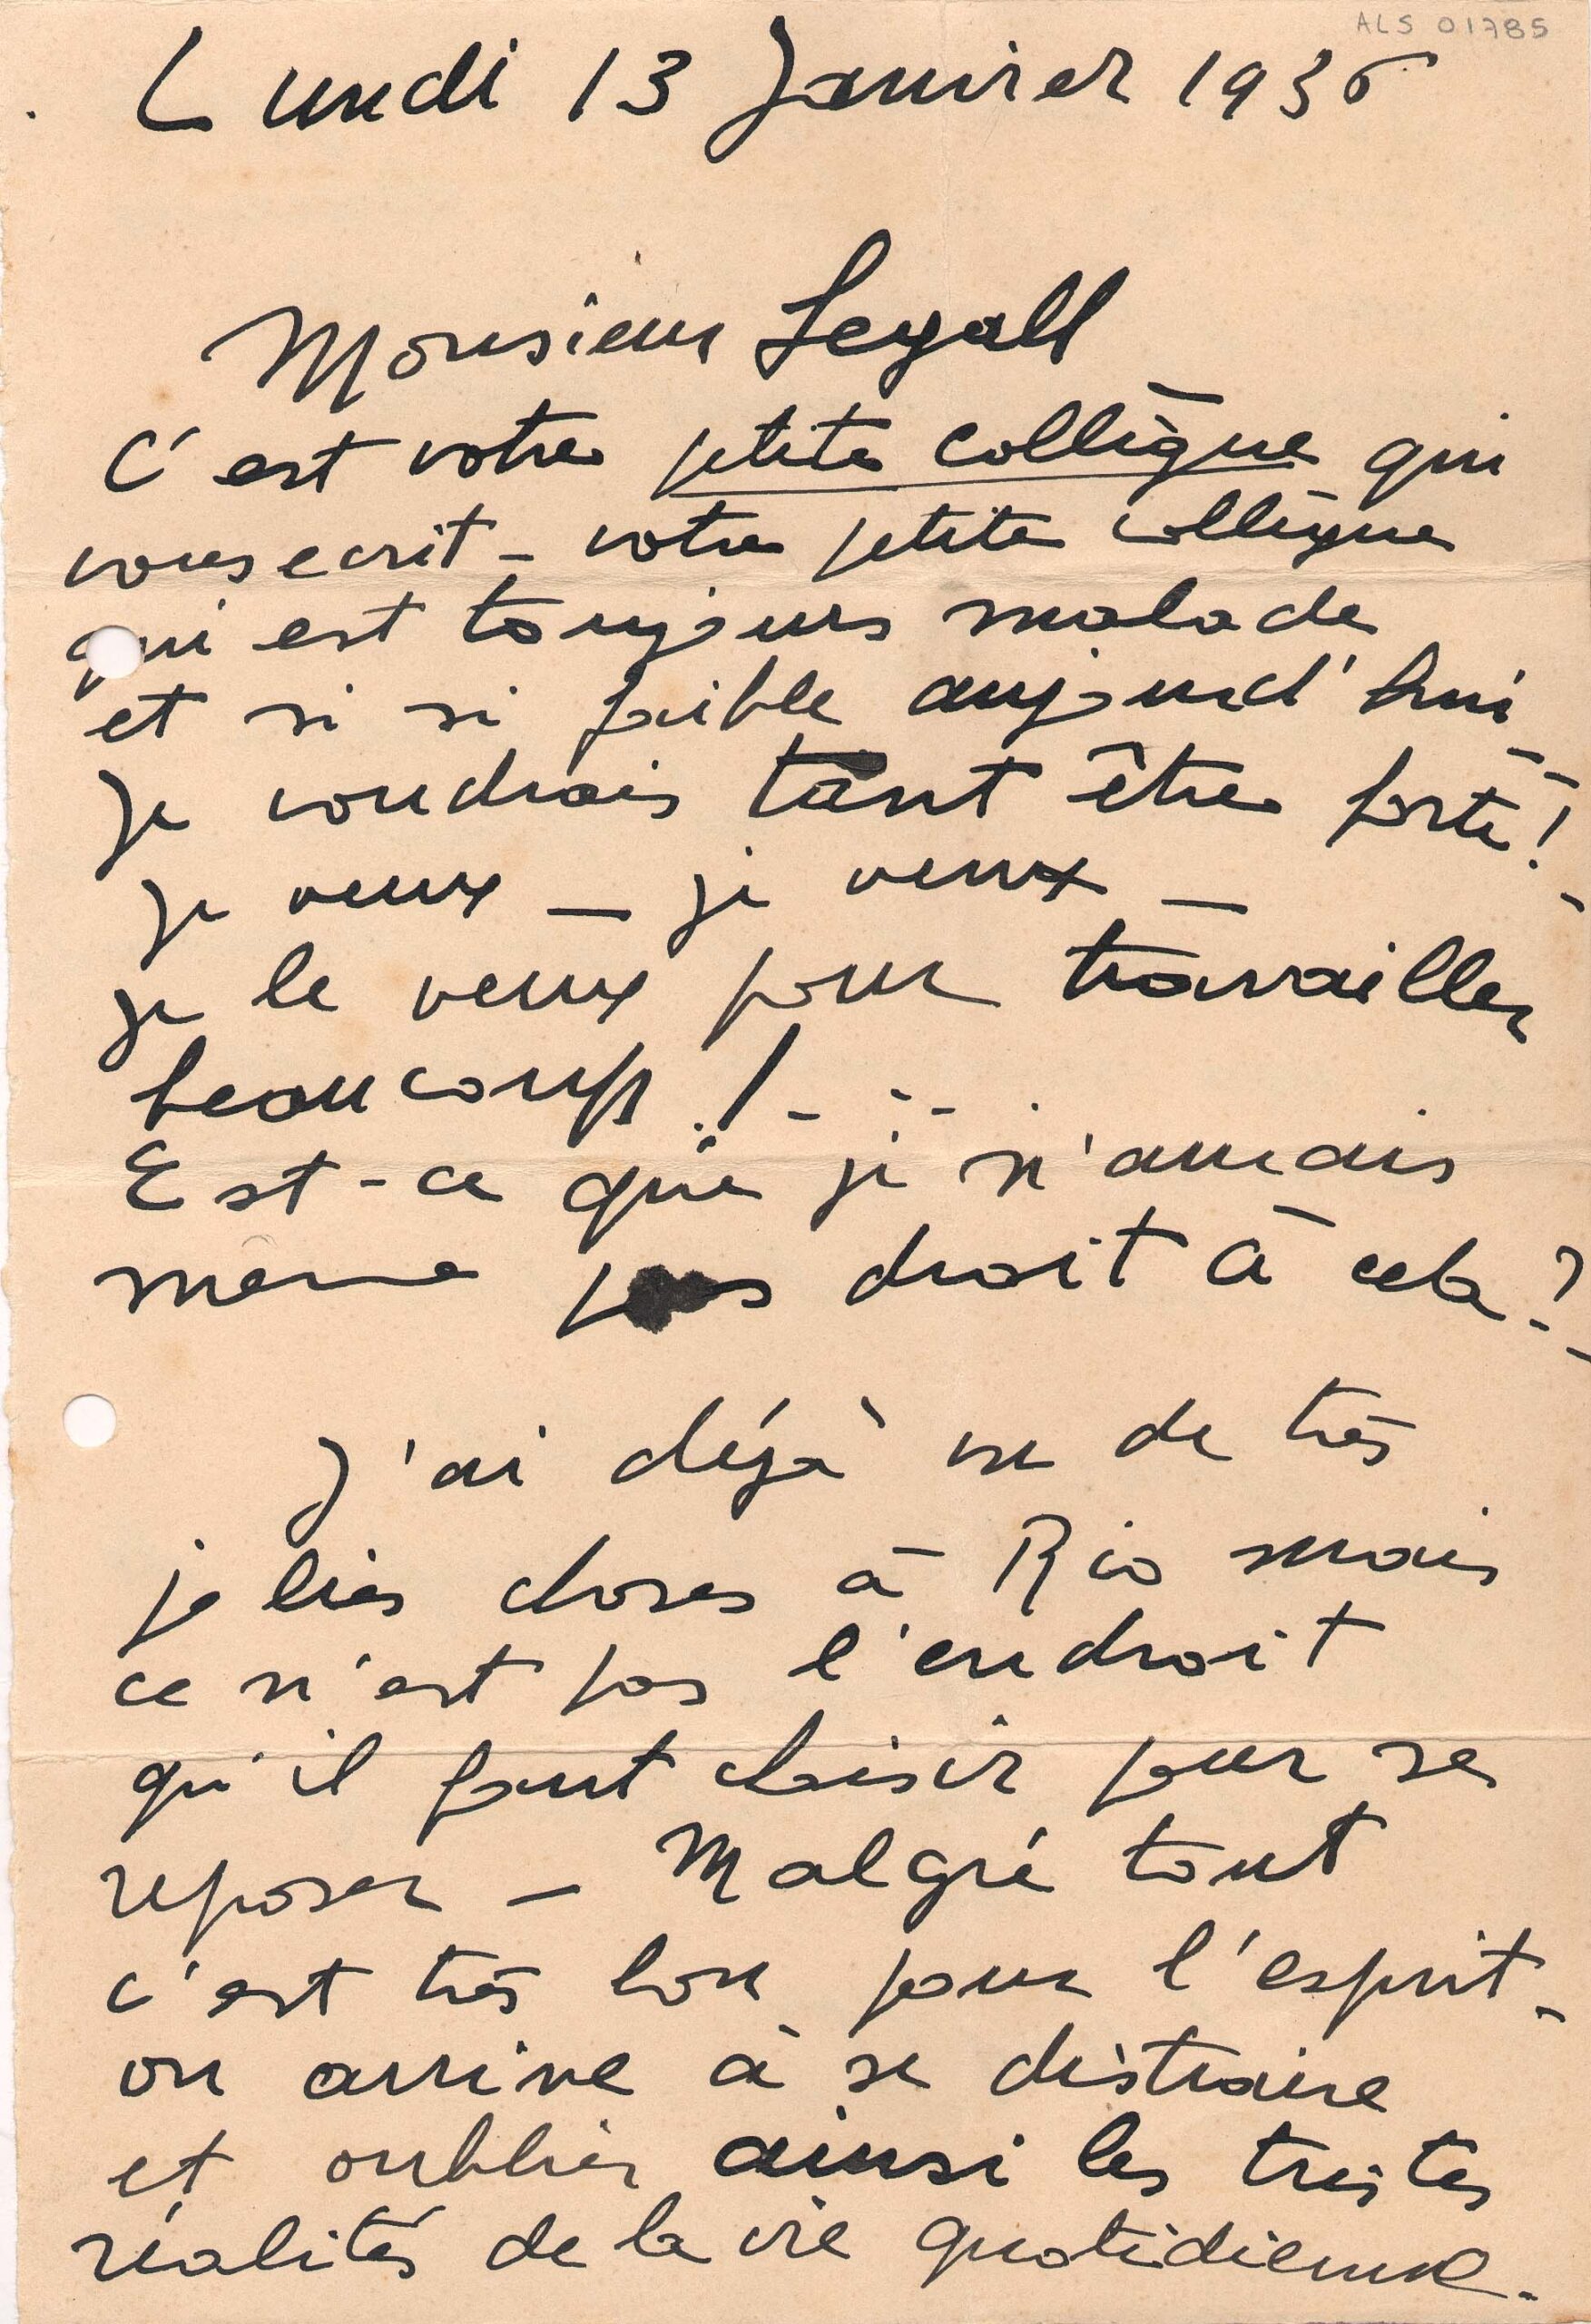 ALS 01785
Lundi 13 Janvier 1936
Monsieur Legall
C'est votre petite collègue qui
vous ecrit - votre petite collègue
qui est toujours malade
et si si faible aujourd'hui -
Je voudrais tant être forte ! -
Je veux - je veux -
Je le veux pour travailler
beaucoup ! - - -
Est-ce que je n'aurais
même pas droit à cela ? -
J'ai déjà vu de très
jolies choses à Rio mais
ce n'est pas l'endroit
qu'il faut choisir pour se
reposer - Malgré tout
c'est très bon pour l'esprit -
on arrive à se distraire
et oublier ainsi les tristes
réalités de la vie quotidienne -